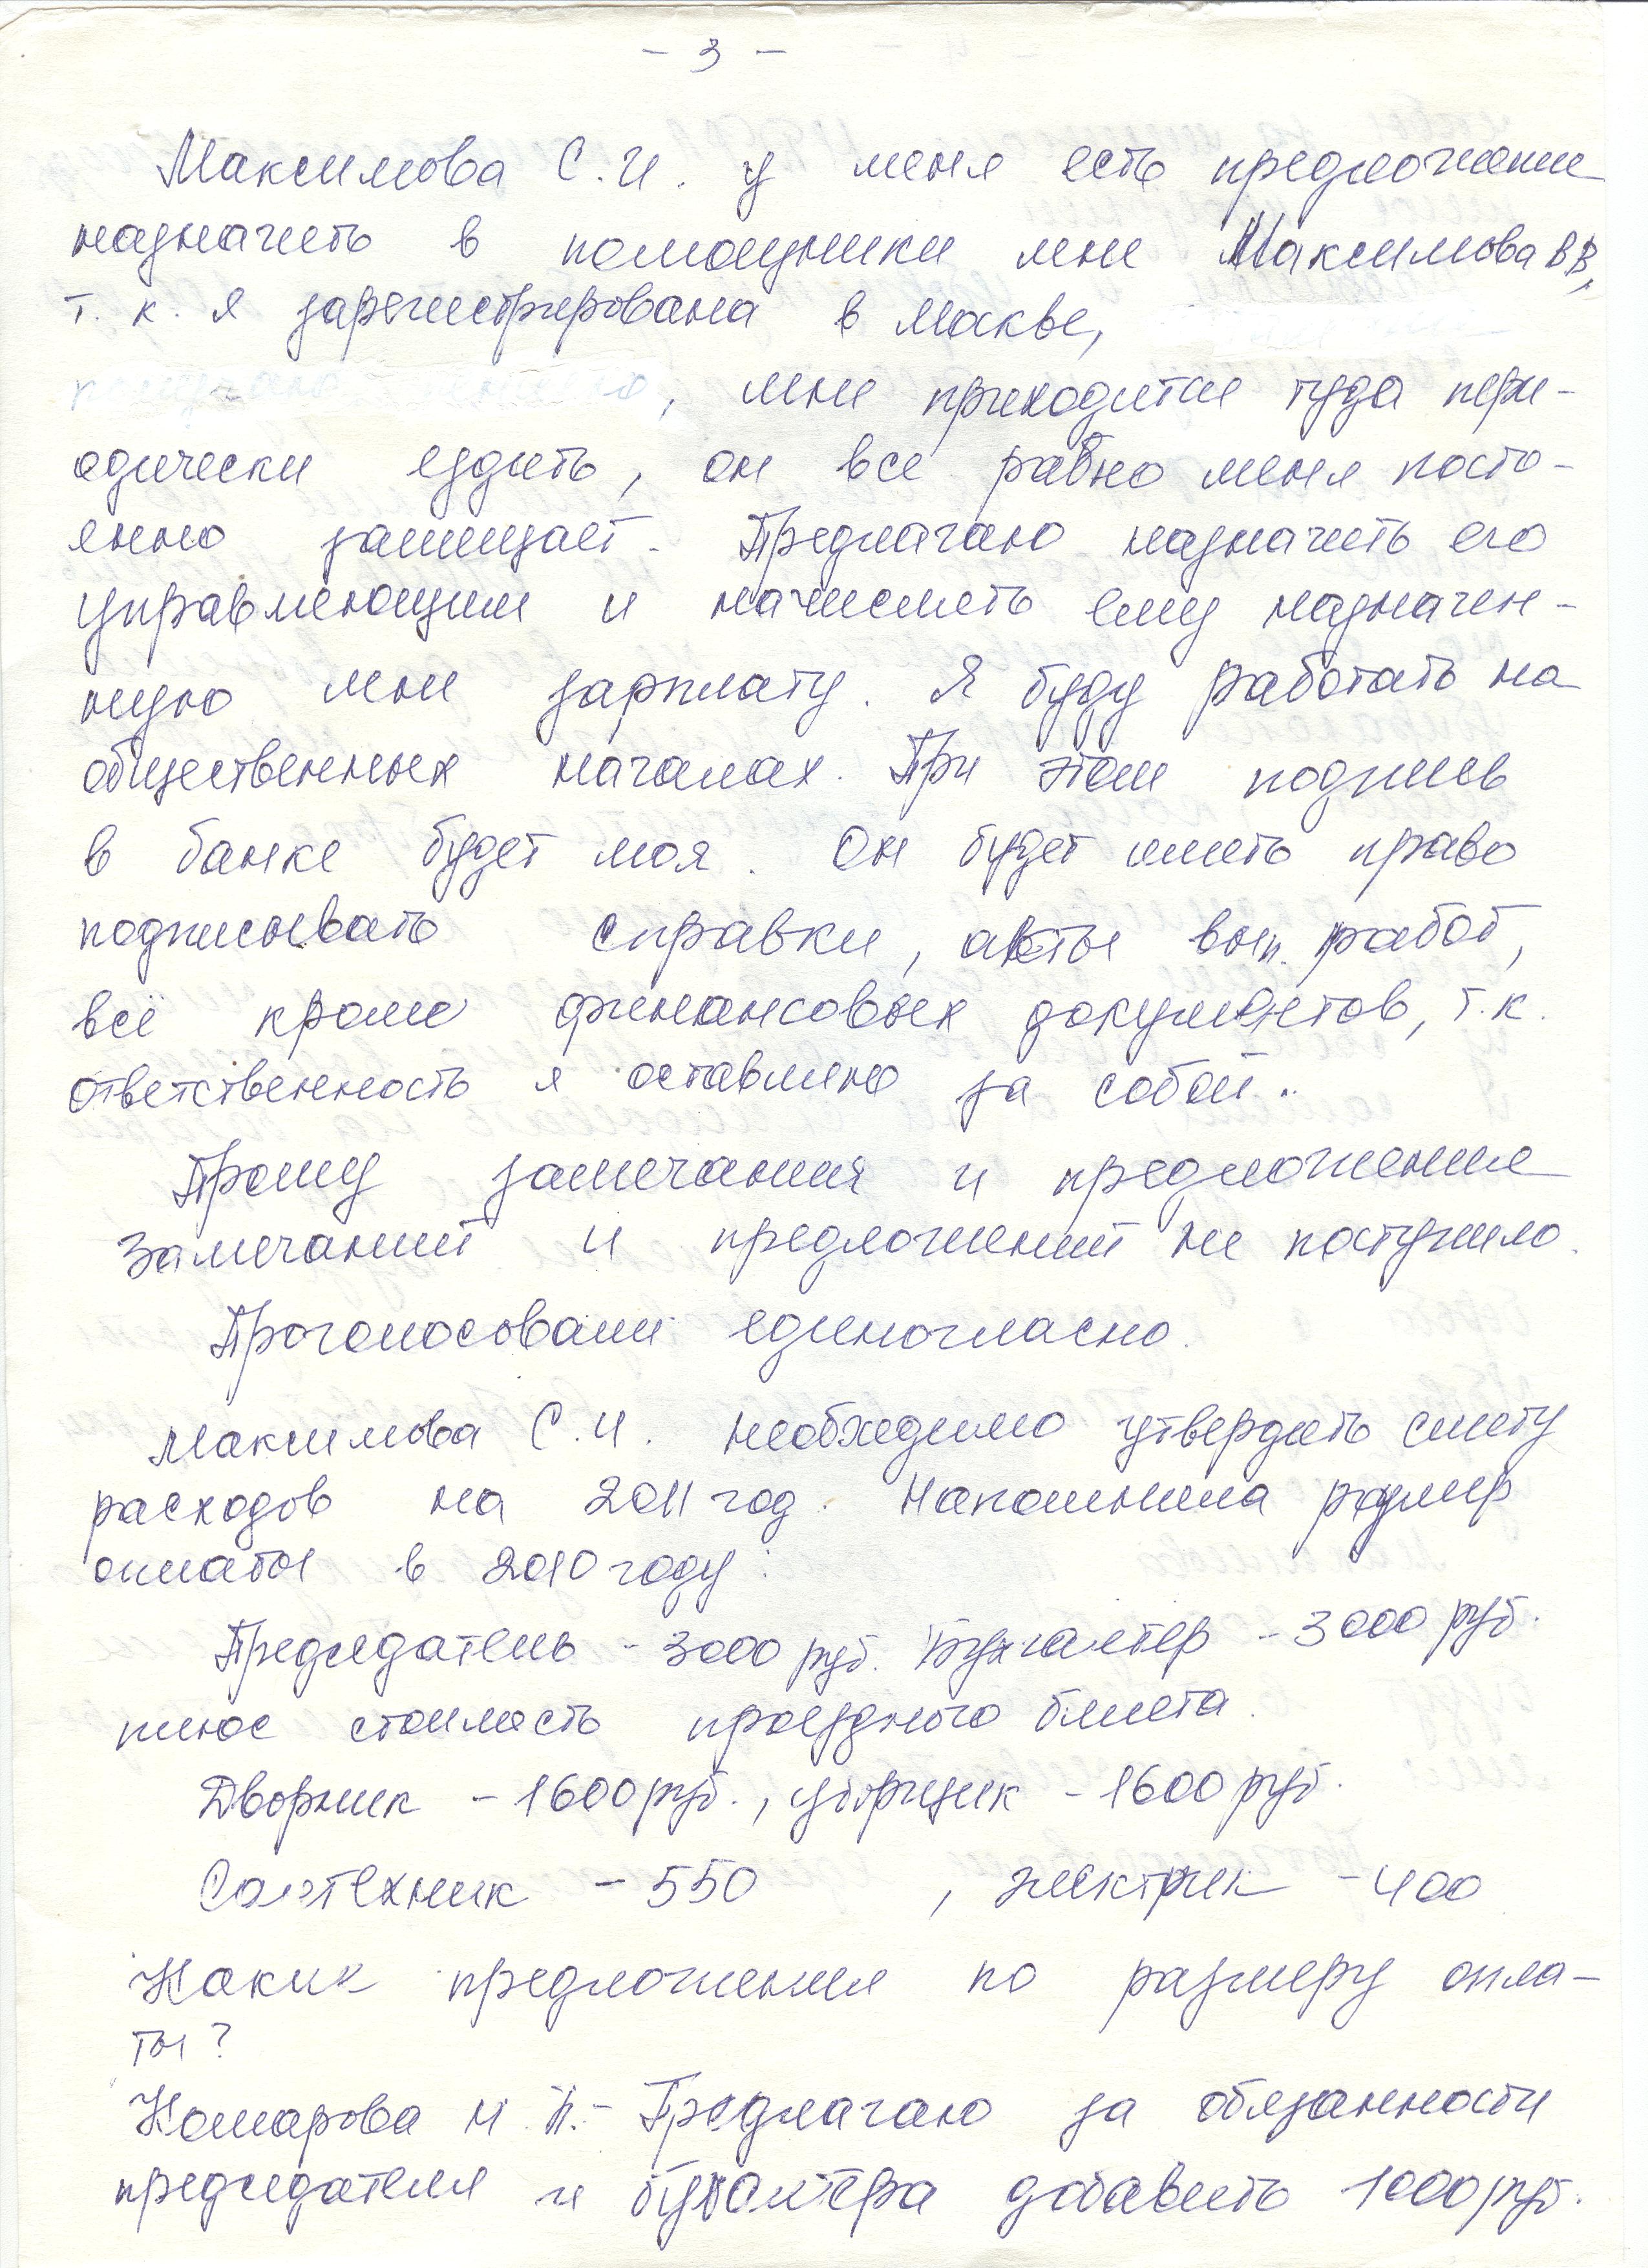 - 3 -
Максимова С.И. у меня есть предложение
назначить в помощники мне Максимова ВВ,
т.к. я зарегистрирована в Макве,
, мне приходится туда пери-
одически ездить, он все равно меня посто-
янно замещает. Предлагаю назначить его
управляющим и начислять ему назначен-
ную мне зарплату. Я буду работать на
общественных началах. При этом подпись
в банке будет моя. Он будет иметь право
подписывать справки, акты вып. работ,
всё кроме финансовых документов, т.к.
ответственность я оставляю за собой.
Прошу замечания и предложения
Замечаний и предложений не поступило.
Проголосовали единогласно.
Максимова С.И. необходимо утвердить смету
расходов на 2011 год. Напомнила размер
оплаты в 2010 году:
Председатель - 3000 руб. Бухгалтер - 3000 руб.
плюс стоимость проездного билета.
Дворник - 1600 руб., уборщик - 1600 руб.
Сантехник - 550 , электрик - 400
Какие предложения по размеру опла-
ты?
Комарова Н.П. - Предлагаю за обязанности
председателя и бухгалтера добавить 1000 руб.